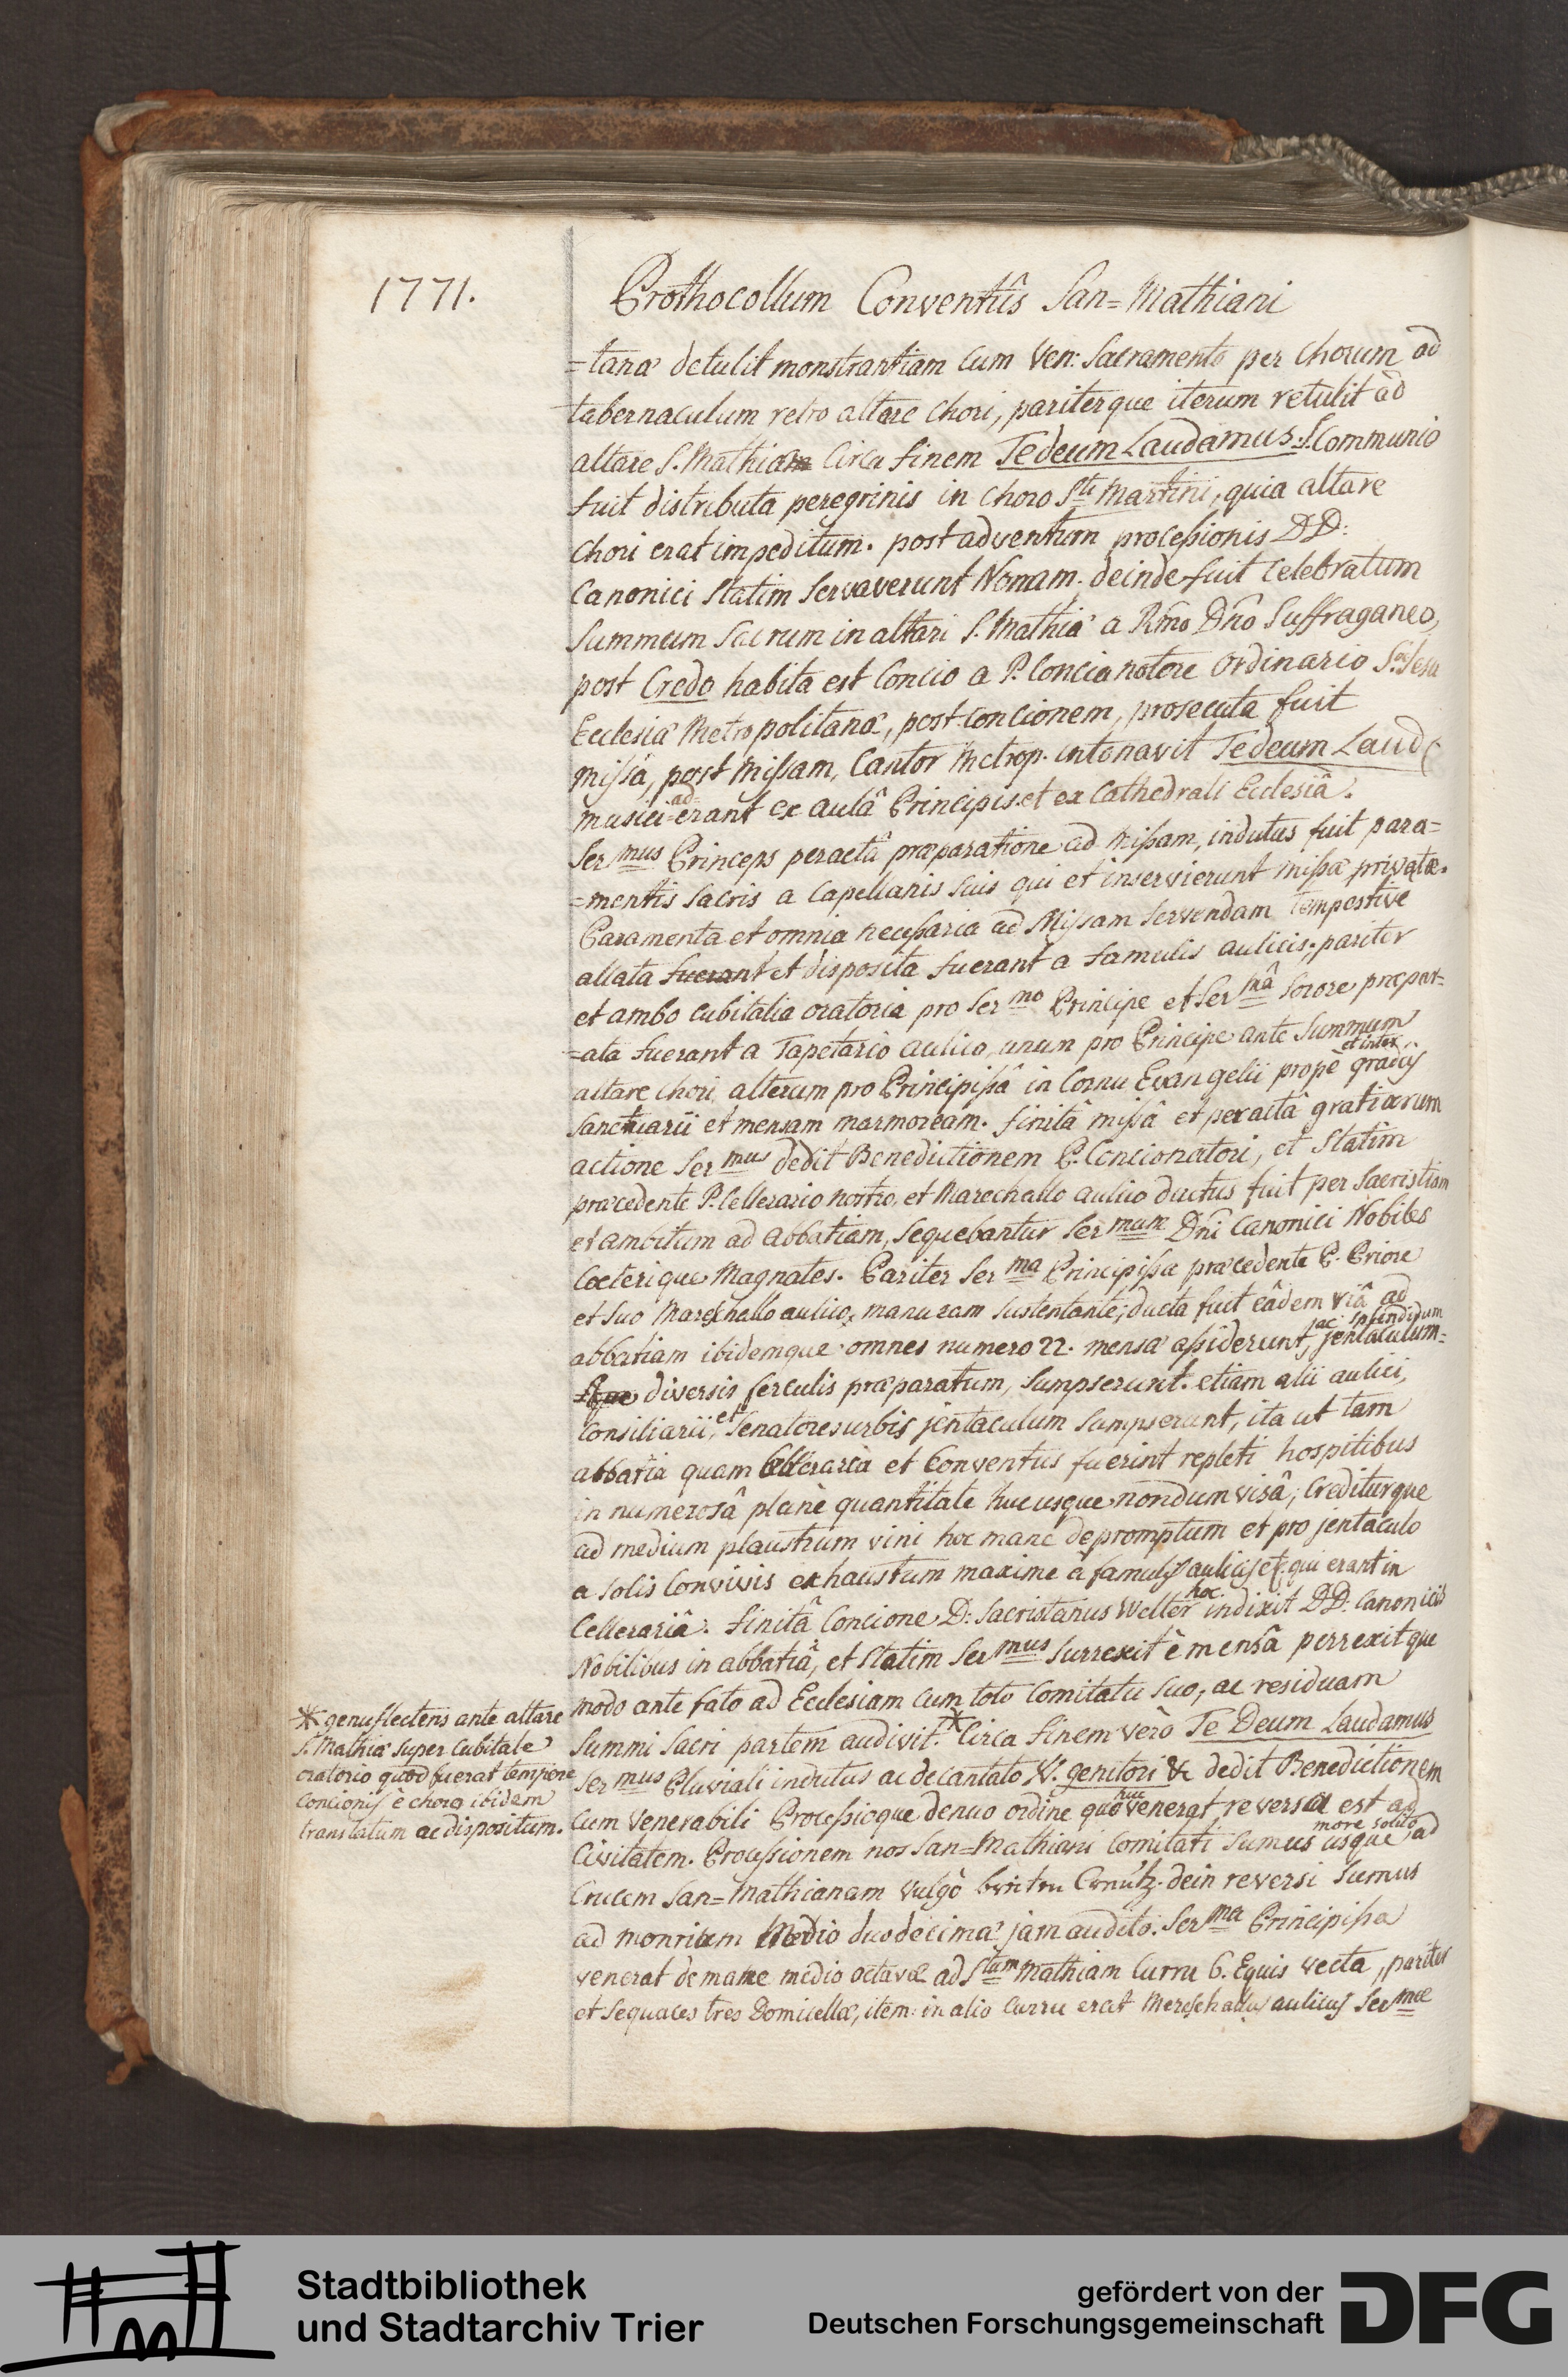 1771.
Prothocollum Conventûs San=Mathiani
=tanæ detulit monstrantiam cum Ven: Sacramento per chorum ad
tabernaculum retro altare chori, pariterque iterum retulit ad
altare S. Mathiæ circa finem Tedeum Laudamus. S. Communio
fuit distributa peregrinis in choro Sti Martini, quia altare
chori erat impeditum. post adventum processionis DD:
Canonici statim servaverunt Nonam. deinde fuit celebratum
summum sacrum in altari S. Mathiæ a Rmo Dno Suffraganeo,
post Credo habita est Concio a P. Concionatore ordinario Soc. Jesu
Ecclesiæ Metropolitanæ, post concionem, prosecuta fuit
missa, post missam, Cantor Metrop. intonavit Tedeum Laud
musici aderant ex aulâ Principis et ex Cathedrali Ecclesiâ.
Ser mus Princeps peractâ præparatione ad missam, indutus fuit para=
=mentis sacris a Capellanis suis qui et inservierunt missæ privatæ.
Paramenta et omnia necessaria ad Missam servendam tempestive
allata fuerant et disposita fuerant a famulis aulicis; pariter
et ambo cubitalia oratoria pro Ser mo Principe et Ser mâ Sorore præpar=
=ata fuerant a Tapetario aulico, unum pro Principe ante Summum
altare chori, alterum pro Principissâ in Cornu Evangelii propè et inter gradus
sanctuarii et mensam marmoream. finitâ missâ et peractâ gratiarum
actione Ser mus dedit Benedictionem P. Concionatori, et statim
præcedente P. Cellerario nostro, et Marechallo aulico ductus fuit per sacristiam
et ambitum ad abbatiam, sequebantur Ser mum Dni Canonici Nobiles
Cæterique Magnates. Pariter Ser ma Principissa præcedente P. Priore
et suo Mareschallo aulico, manu eam sustentante; ducta fuit eâdem viâ ad
abbatiam ibidemque omnes numero 22. mensæ assiderunt, ac splendidum jentaculum=
diversis ferculis præparatum, sumpserunt. etiam alii aulici,
Consiliarii, et Senatores urbis jentaculum sumpserunt, ita ut tam
abbatia quam Celleraria et Conventus fuerint repleti hospitibus
in numerosâ planè quantitate hucusque nondum visâ; crediturque
ad medium plaustrum vini hoc mane depromptum et pro jentaculo
a solis Convivis exhaustum maxime à famulis aulicis et qui erant in
Cellerariâ. finitâ Concione D: Sacristanus Welter hoc indixit DD. Canonicis
Nobilibus in abbatiâ, et statim Ser mus surrexit è mensâ perrexitque
modo ante fato ad Ecclesiam cum toto Comitatu suo, ac residuam
summi sacri partem audivit.* Circa finem verò Te Deum Laudamus
Ser mus Pluviali indutus ac decantato V. genitori &c dedit Benedictionem
cum Venerabili Processioque denuo ordine quo huc venerat reversa est ad
Civitatem. Processionem nos San=Mathiani Comitati sumus more solito usque ad
Crucem San=Mathianam vulgò dein reversi sumus
ad monrium Medio duodecimæ jam audito. Ser ma Principissa
venerat de mane medio octavæ ad Stum Mathiam Curru 6. Equis vecta, pariter
et sequaces tres Domicellæ, item in alio curru erat Mareschallus aulicus Ser mæ
* genuflectens ante altare
S. Mathiæ super Cubitale
oratorio quod fuerat tempore
Concionis è choro ibidem
translatum ac dispositum.
Stadtbibliothek
und Stadtarchiv Trier
gefördert von der
Deutschen Forschungsgemeinschaft
DFG